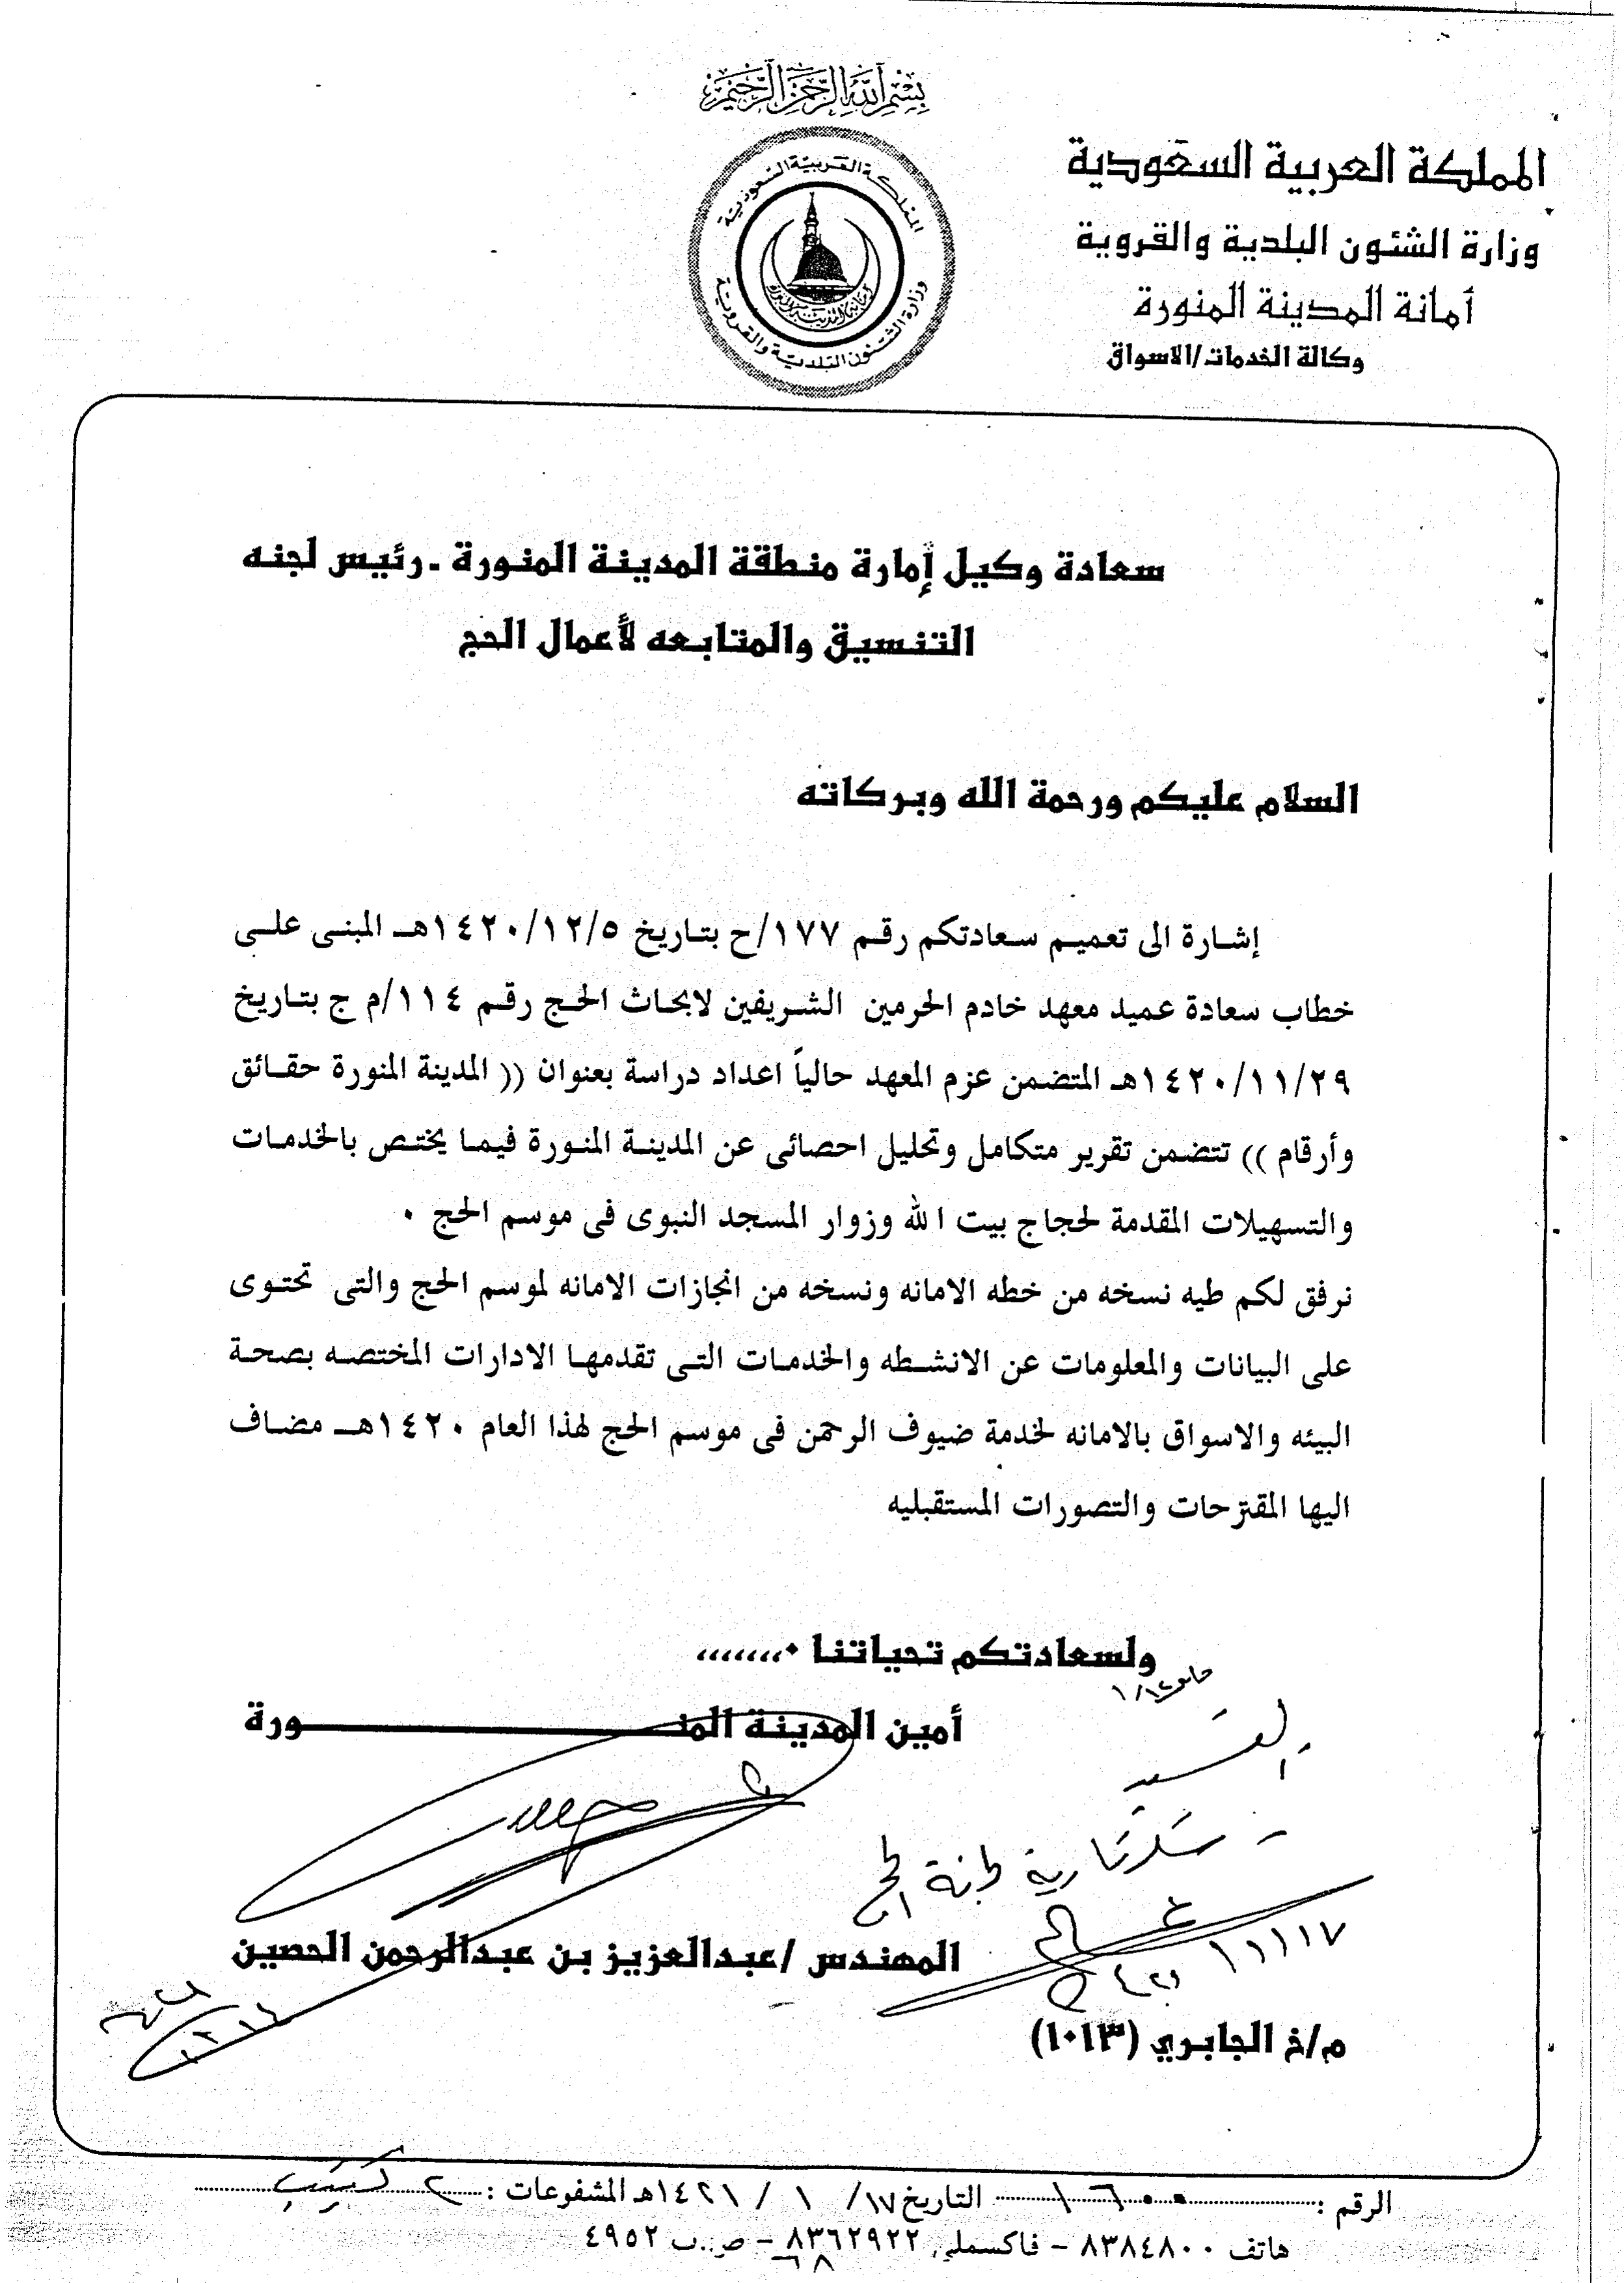 بسم الله الرحمن الرحيم
المملكة العربية السعودية
وزارة الشئون البلدية والقروية
أمانة المدينة المنورة
وكالة الخدمات/الاسواق
المملكة العربية السعودية
وزارة الشئون البلدية والقروية
سعادة وكيل إمارة منطقة المدينة المنورة - رئيس لجنه
التنسيق والمتابعه لأعمال الحج
السلام عليكم ورحمة الله وبركاته
إشارة الى تعميم سعادتكم رقم ١٧٧/ح بتاريخ ١٤٢٠/١٢/٥هـ المبنى على
خطاب سعادة عميد معهد خادم الحرمين الشريفين لابحاث الحج رقم ١١٤/م ج بتاريخ
١٤٢٠/١١/٢٩هـ المتضمن عزم المعهد حالياً اعداد دراسة بعنوان (( المدينة المنورة حقائق
وأرقام )) تتضمن تقرير متكامل وتحليل احصائى عن المدينة المنورة فيما يختص بالخدمات
والتسهيلات المقدمة لحجاج بيت الله وزوار المسجد النبوى فى موسم الحج ٠
نرفق لكم طيه نسخه من خطه الامانه ونسخه من انجازات الامانه لموسم الحج والتى تحتوى
على البيانات والمعلومات عن الانشطه والخدمات التى تقدمها الادارات المختصه بصحة
البيئه والاسواق بالامانه لخدمة ضيوف الرحمن فى موسم الحج لهذا العام ١٤٢٠هـ مضاف
اليها المقترحات والتصورات المستقبليه
ولسعادتكم تحياتنا ٠،،،،،،،
أمين المدينة المنـــورة
سكرتارية لجنة الحج
المهندس /عبدالعزيز بن عبدالرحمن الحصين
م/خ الجابري (١٠١٣)
الرقم : ١٦٠٠ التاريخ ١٧/ ١ / ١٤٢١هـ المشفوعات : ٢
هاتف ٨٣٨٤٨٠٠ - فاكسملي ٨٣٦٢٩٢٢ - ص.ب ٤٩٥٢
٦٨